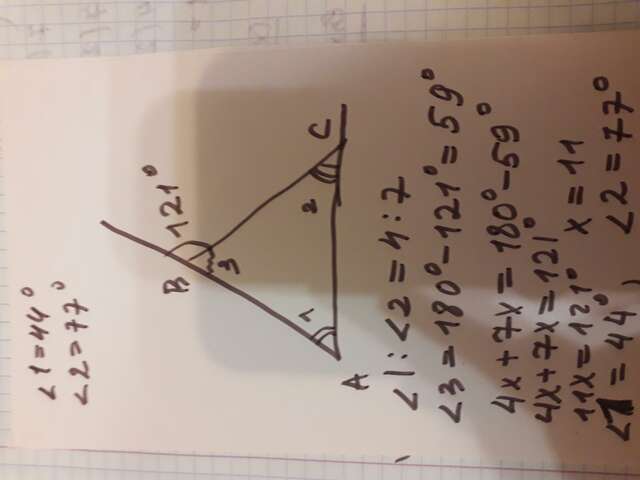 ∠1=44°
∠2=77°
B 121°
3
C
2
1
A
∠1:∠2=4:7
∠3=180°-121°=59°
4x+7x=180°-59°
4x+7x=121°
11x=121° x=11
∠1=44° ∠2=77°